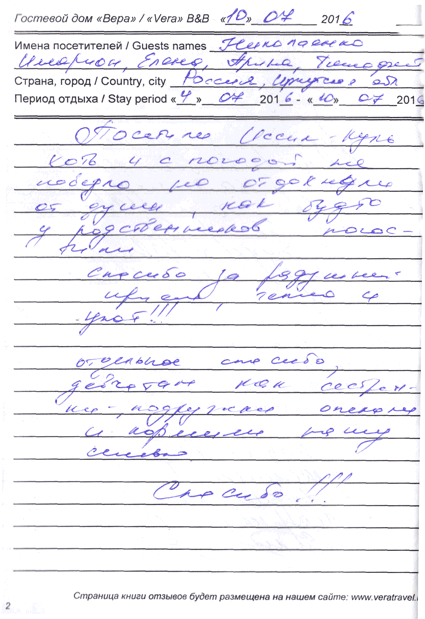 Гостевой дом «Вера» / «Vera» B&B «10» 07 2016
Имена посетителей / Guests names Николаенко
Иларион, Елена, Арина, Тимофей
Страна, город / Country, city Россия, Иркутская обл.
Период отдыха / Stay period «4» 07 2016 - «10» 07 2016
Посетили Иссык-Куль
хоть и с погодой не
повезло но отдохнули
от души, как будто
у родственников погос-
тили.
Спасибо за радушный
прием, тепло и
уют!!!
отдельное спасибо,
девчатам как сестрен-
ки-подружки опекали
и кормили нашу
семью.
Спасибо!!!
Страница книги отзывов будет размещена на нашем сайте: www.veratravel.
2